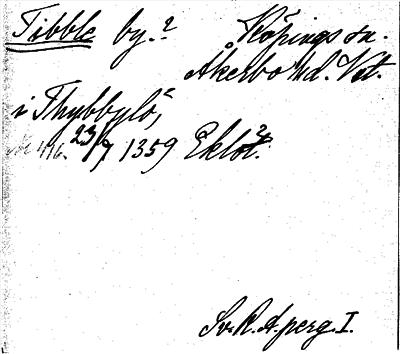 Tibble by.? Köpings sn.
Åkerbo hd. Vstl.
i Thybbylø,
Nr 416. 23/7 1359 Eklöt?.
Sv. R. A. perg. I.